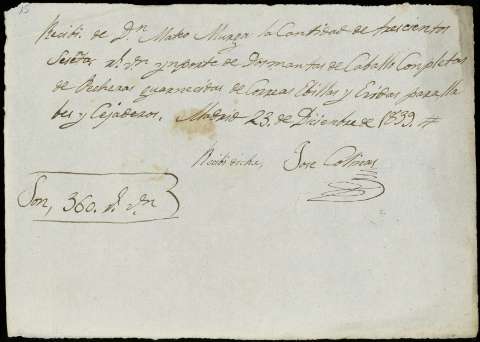 15
Recibi. de Dn Mateo Murga la Cantidad de trescientos
Sesenta rs. vn ymporte de Dos mantas de Caballo Completas
de Pecheras guarnecidas de Correas Ebillas y
bes y Cejaderos. Madrid 23. de Diciembre de 1839. #
Recibi dicha, Jose
Son, 360. rs. vn